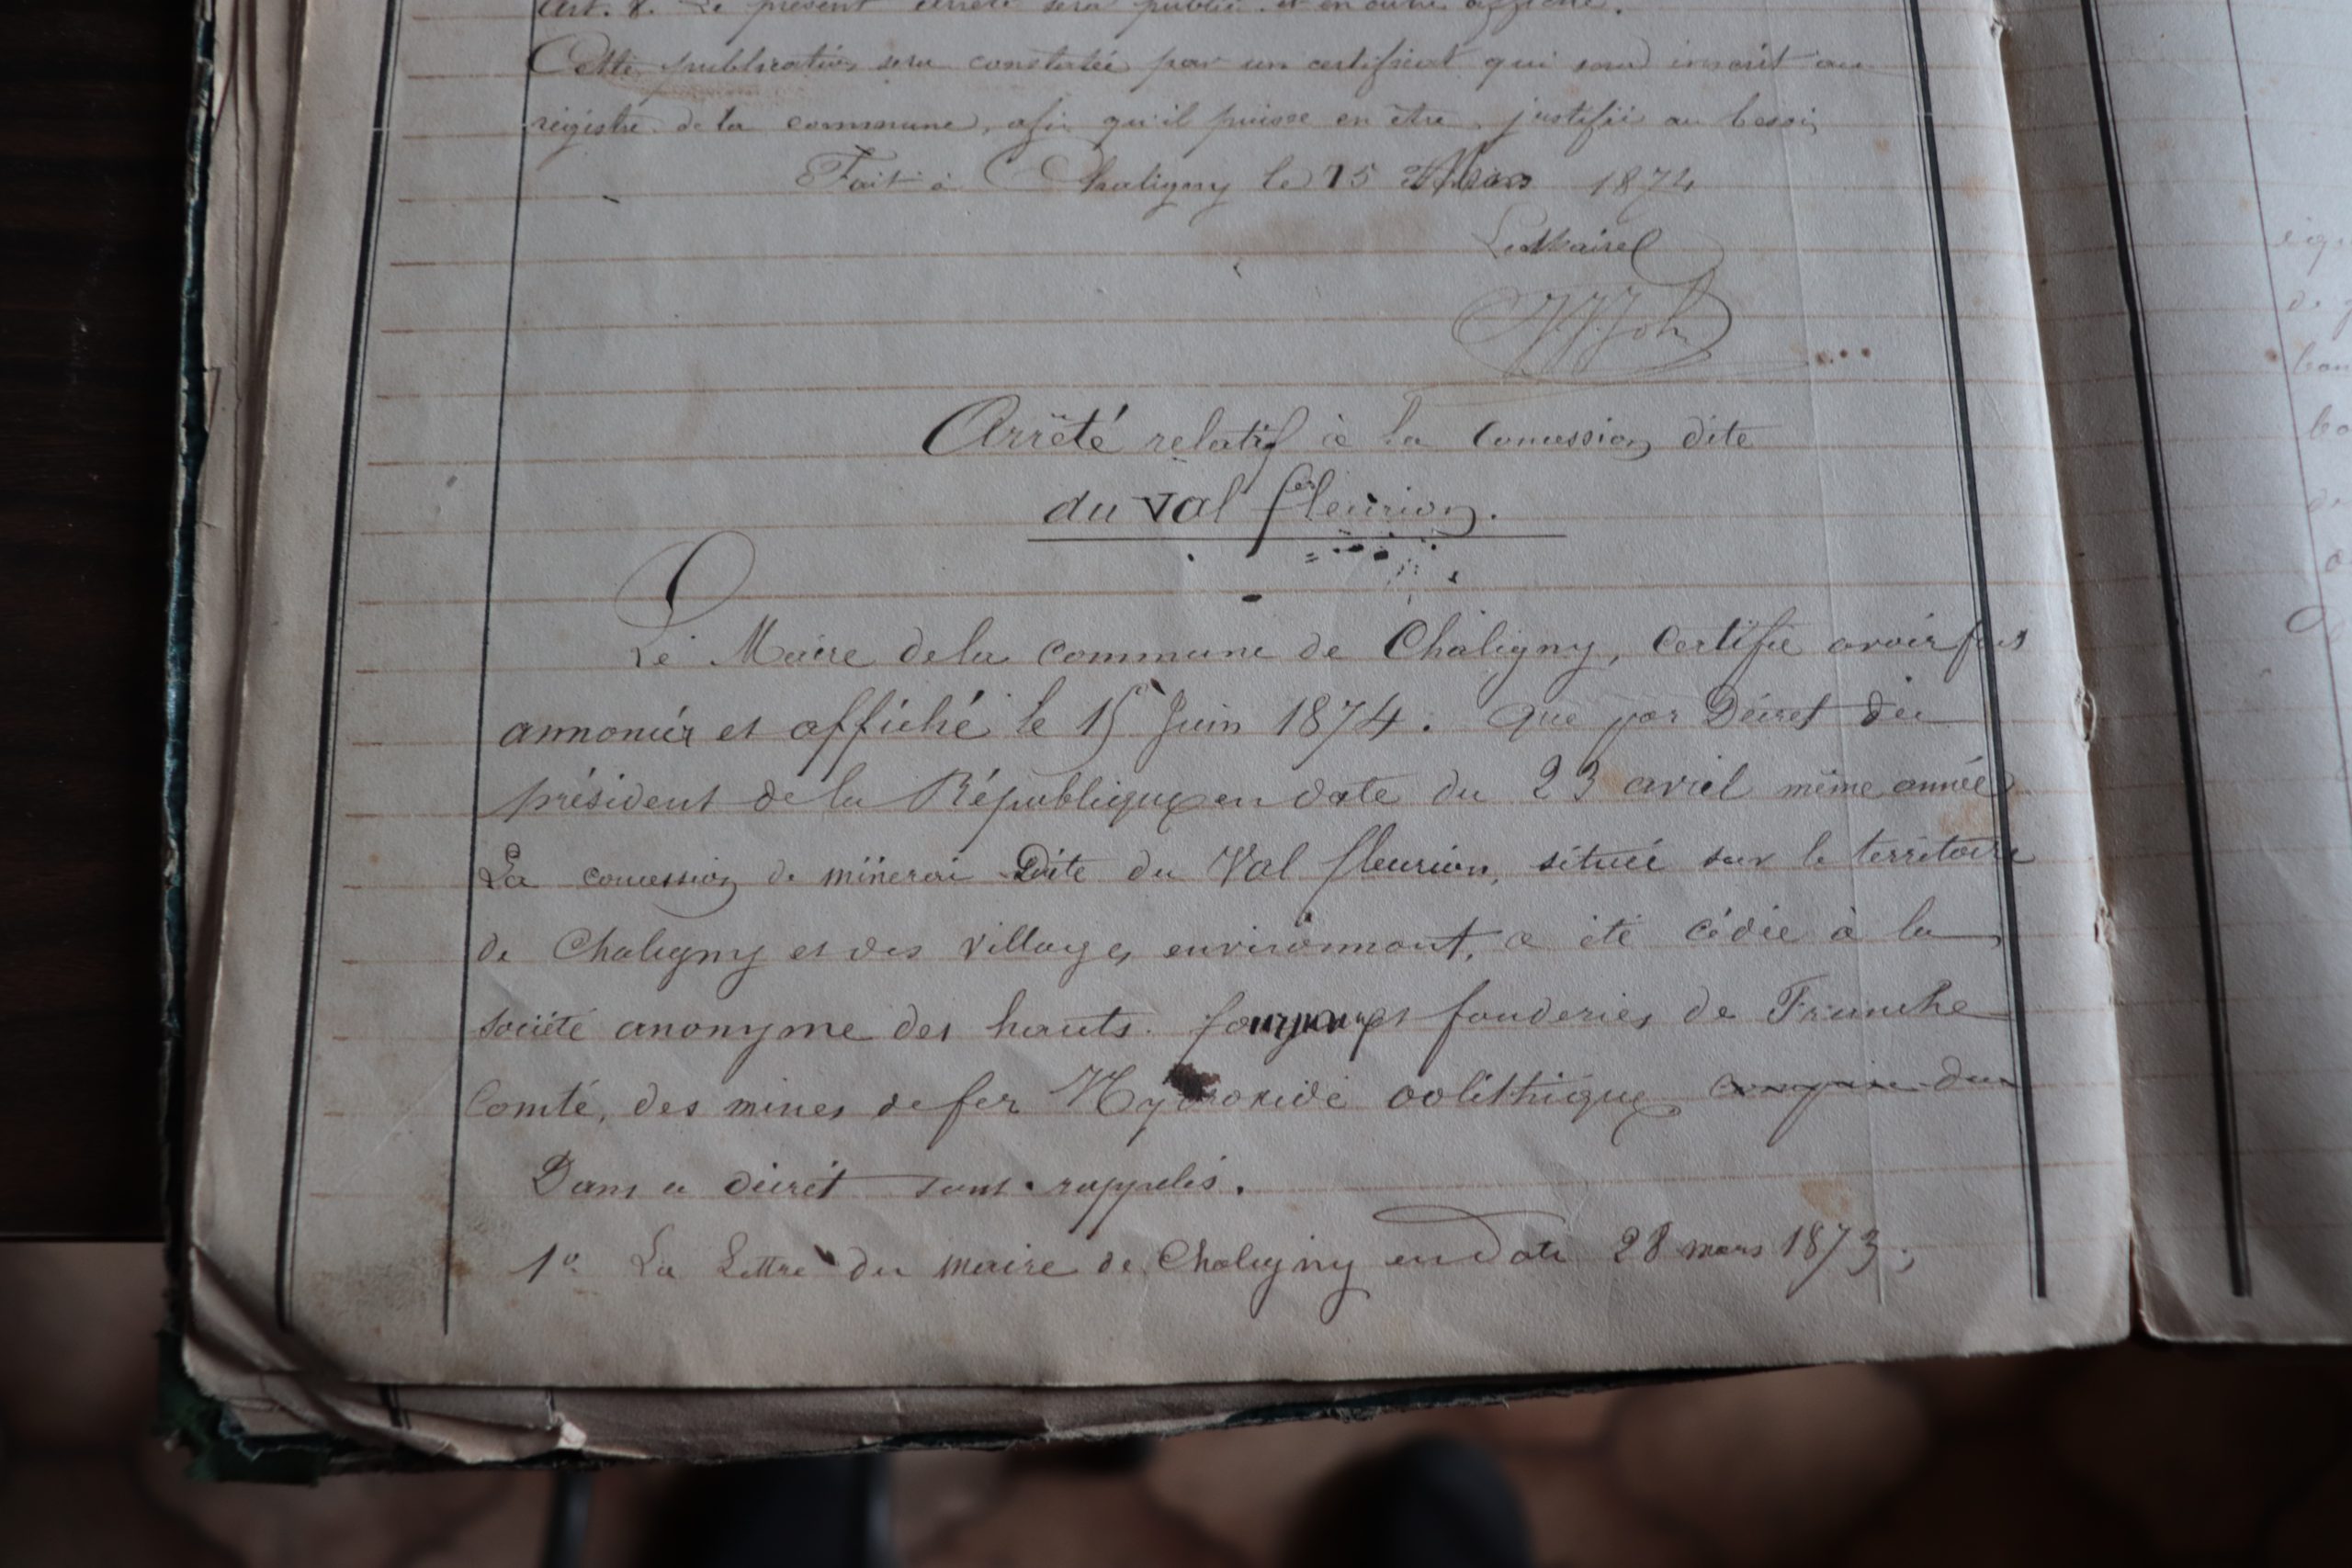 Art. 8. Le présent arrêté sera publié et en outre affiché.
Cette publication sera constatée par un certificat qui sera inscrit au
régistre de la commune, afin qu'il puisse en être justifié au besoin
Fait à Chaligny le 15 Mars 1874
Le Maire
Arrêté relatif à la concession dite
du Val fleurion.
Le Maire de la commune de Chaligny, certifie avoir fait
annoncér et affiché le 15 Juin 1874. que par Décret du
président de la République en date du 23 avril même année
La concession de minerai Dite du Val fleurion, située sur le territoire
de Chaligny et des villages environnant, a été cédée à la
société anonyme des hauts. fourneaux et fonderies de Franche
Comté, des mines de fer Hydroxidé oolithique
Dans ce décrèt sont rappelés.
1º La Lettre du maire de Chaligny en date 28 mars 1873;